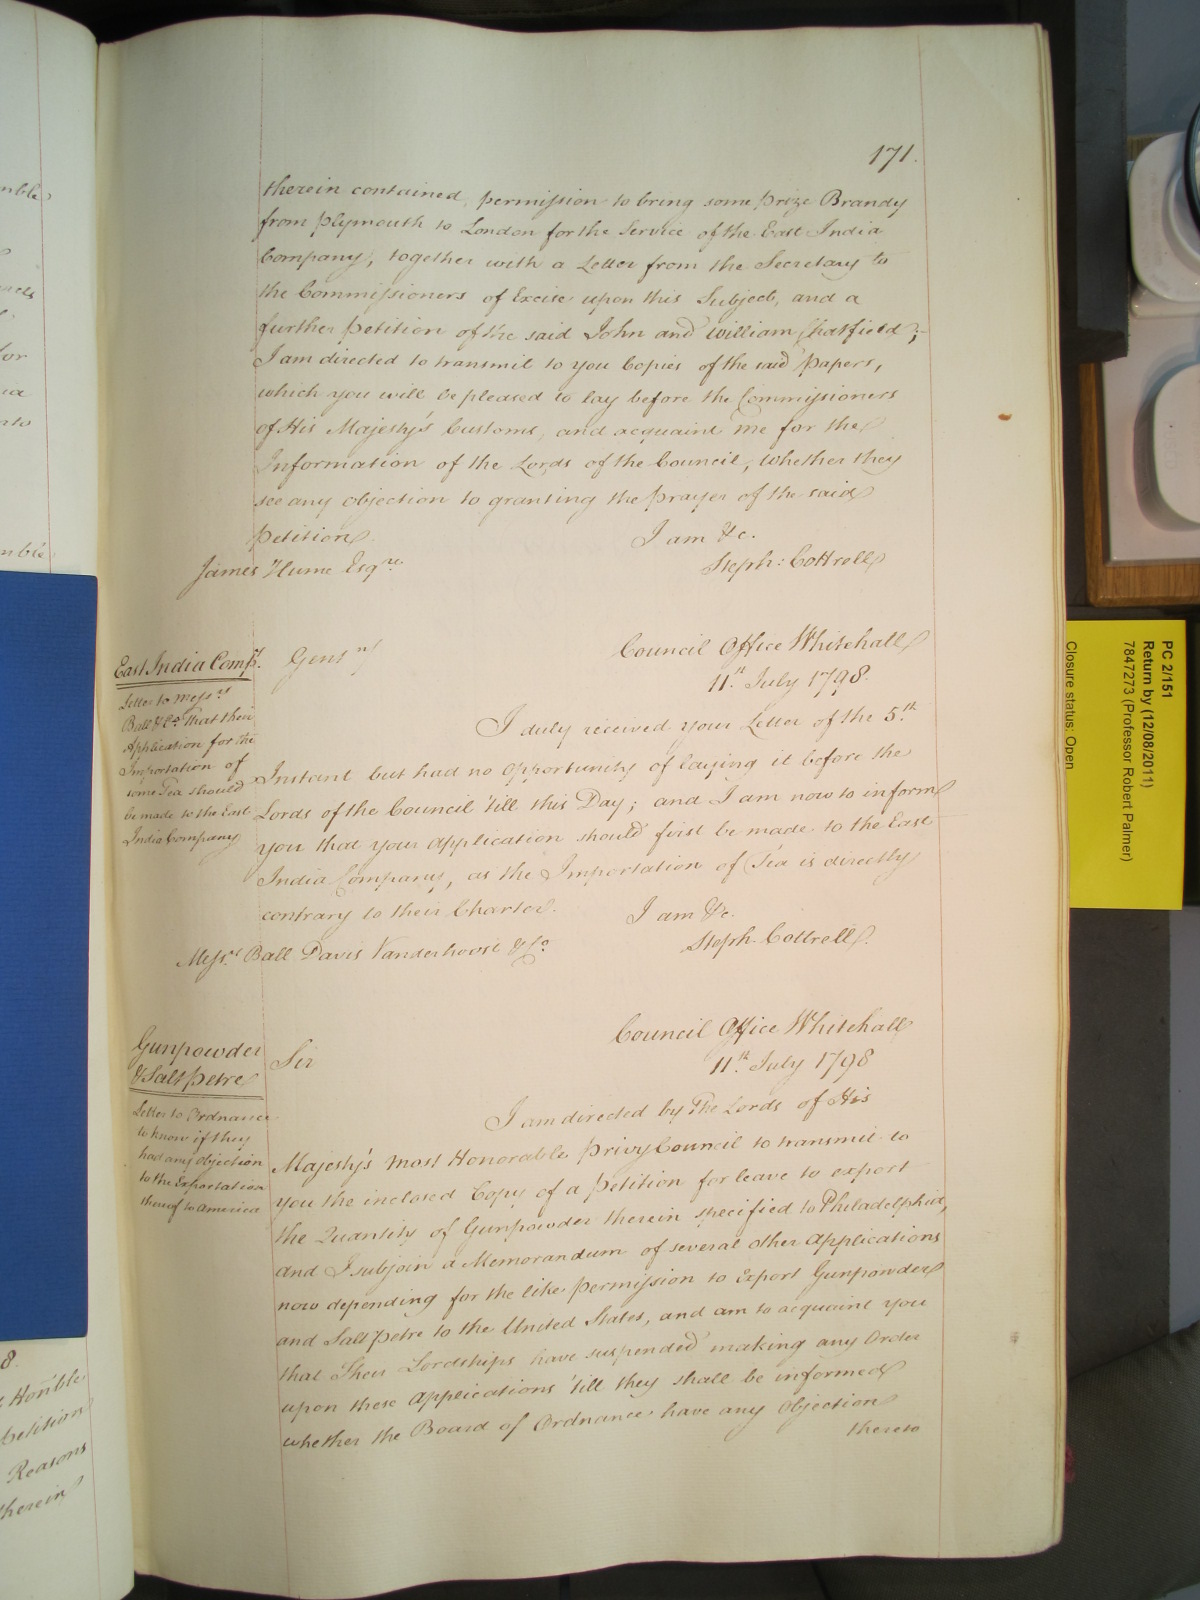 171.
therein contained, permission to bring some prize Brandy
from plymouth to London for the Service of the East India
Company, together with a Letter from the Secretary to
the Commissioners of Excise upon this Subject, and a
further petition of the said John and William Chatfield;-
I am directed to transmit to you Copies of the said Papers,
which you will be pleased to lay before the Commissioners
of His Majesty's Customs, and acquaint me for the
Information of the Lords of the Council, whether they
see any objection to granting the prayer of the said
petition.
I am &c.
James Hume Esqre.
Steph: Cottrell
East India Compy.
Letter to Messrs
Ball & Co. That their
Application for the
Importation of
some Tea should
be made to the East
India Company
Gentn
Council Office Whitehall
11th July 1798.
I duly received your Letter of the 5th
Instant but had no opportunity of laying it before the
Lords of the Council 'till this Day; and I am now to inform
you that your application should first be made to the East
India Company, as the Importation of Tea is directly
contrary to their Charter.
I am &c.
Steph. Cottrell.
Messrs Ball Davis Vanderhoost & Co
Gunpowder
& Salt petre
Letter to Ordnance
to know if they
had any objection
to the Exportation
thereof to America
Council Office Whitehall
11th July 1798
Sir
I am directed by The Lords of His
Majesty's most Honorable privy Council to transmit to
you the inclosed Copy of a petition for leave to export
the Quantity of Gunpowder therein specified to Philadelphia,
and I subjoin a Memorandum of several other applications
now depending for the like permission to Export Gunpowder
and Salt petre to the United States, and am to acquaint you
that Their Lordships have suspended making any Order
upon these applications 'till they shall be informed
whether the Board of Ordnance have any Objection
thereto
8.
Honble
petition
Reasons
therein
PC 2/151
Return by (12/08/2011)
7847273 (Professor Robert Palmer)
Closure status: Open